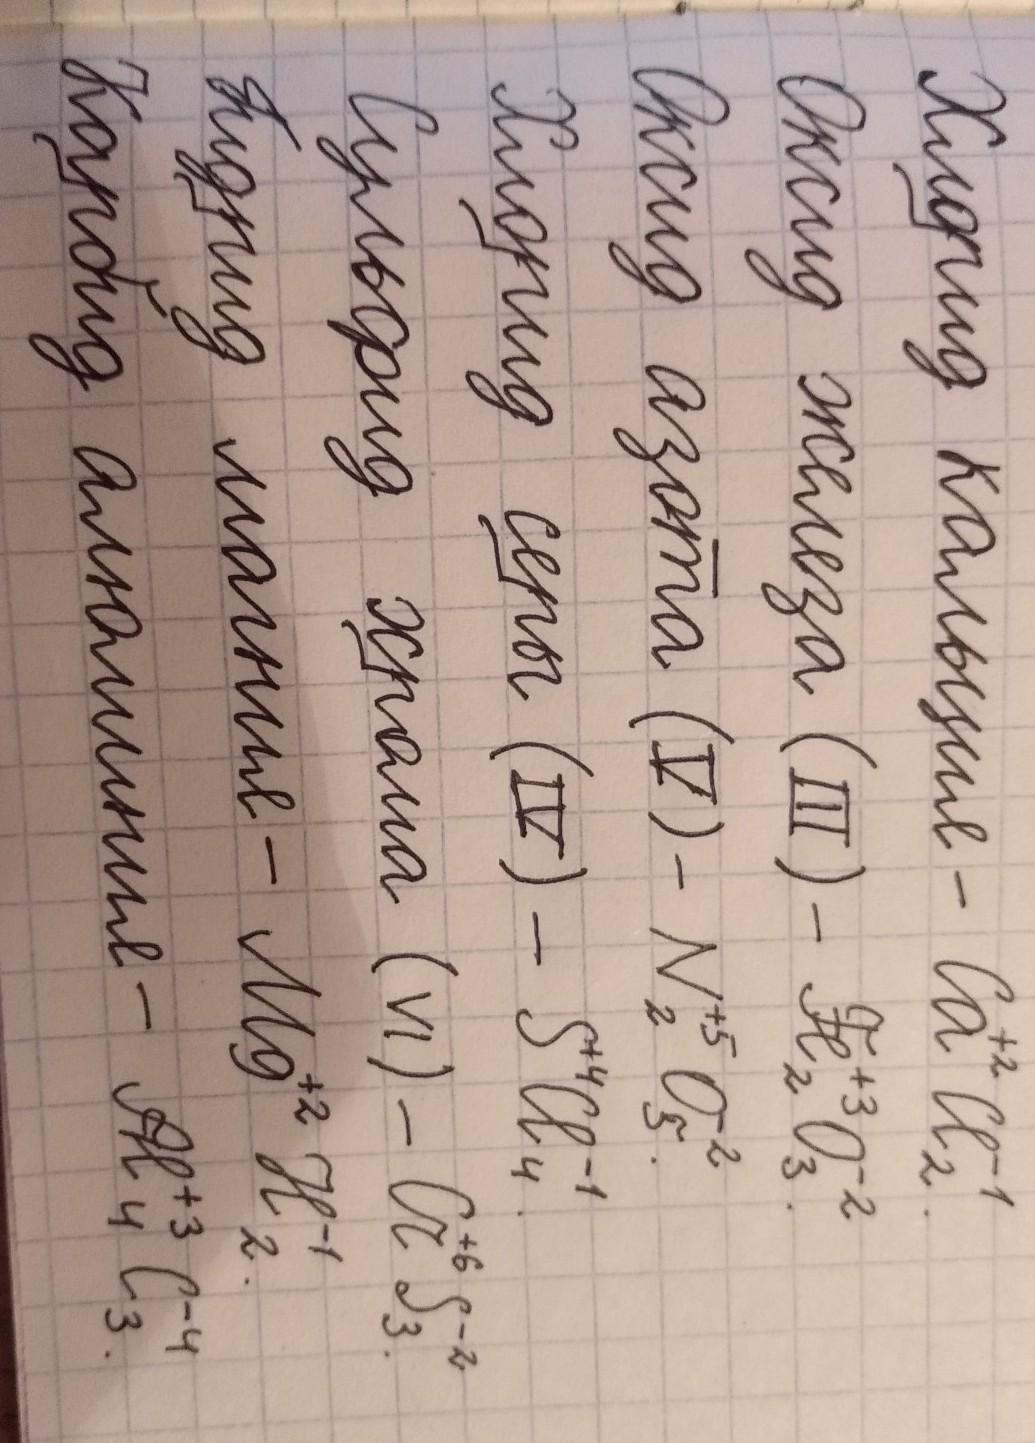 Хлорид кальция – Ca⁺²Cl₂⁻¹.
Оксид железа (III) – Fe₂⁺³O₃⁻².
Оксид азота (V) – N₂⁺⁵O₅⁻².
Хлорид серы (IV) – S⁺⁴Cl₄⁻¹.
Сульфид хрома (VI) – Cr⁺⁶S₃⁻².
Гидрид магния – Mg⁺²H₂⁻¹.
Карбид алюминия – Al₄⁺³C₃⁻⁴.